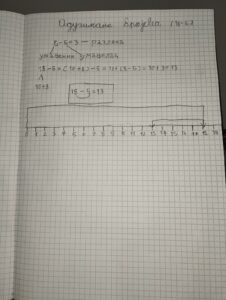 Одузимање бројева (18-5)
8-5=3 — разлика
умањеник умањилац
18-5=(10+8)-5=10+(8-5)=10+3=13
10+8
18-5=13
0 1 2 3 4 5 6 7 8 9 10 11 12 13 14 15 16 17 18 19